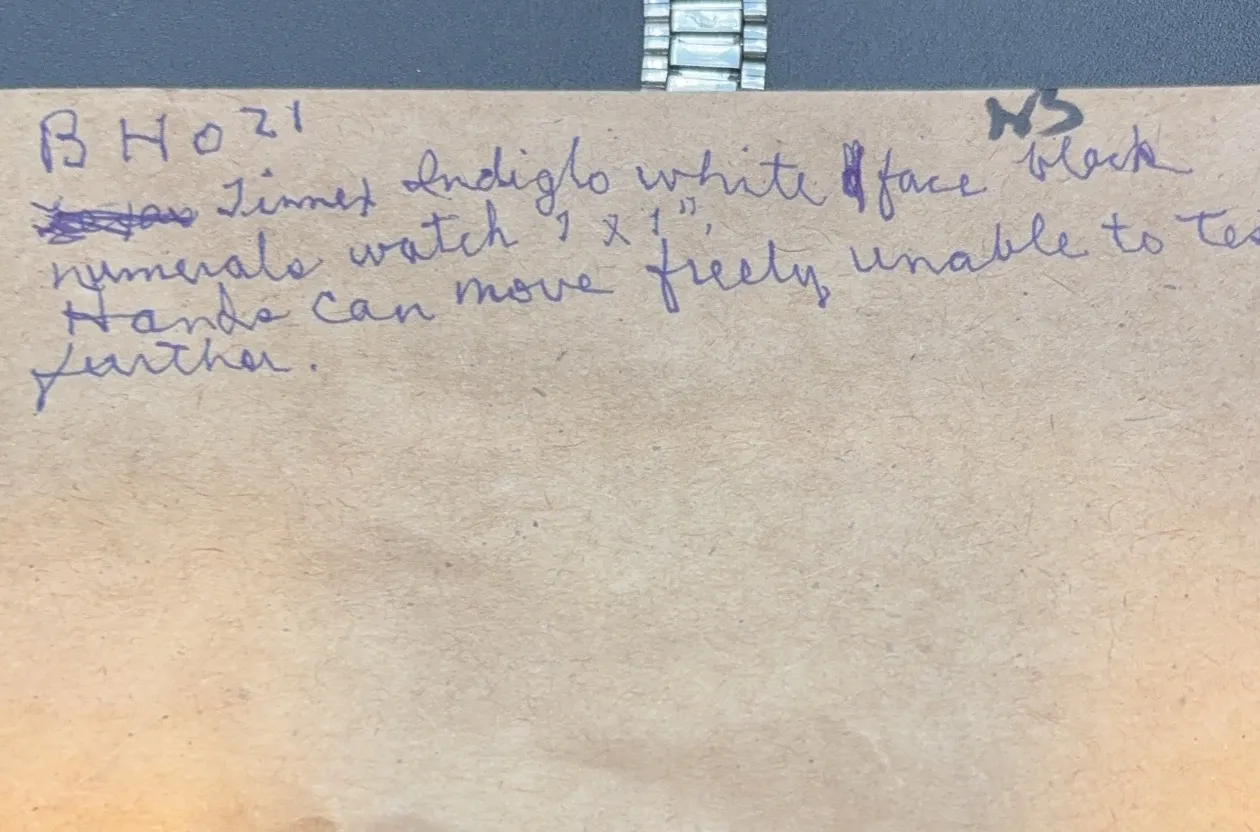 BH021
NS
Timex Indiglo white face black
numerals watch 1 x 1",
Hands can move freely, unable to tes
further.